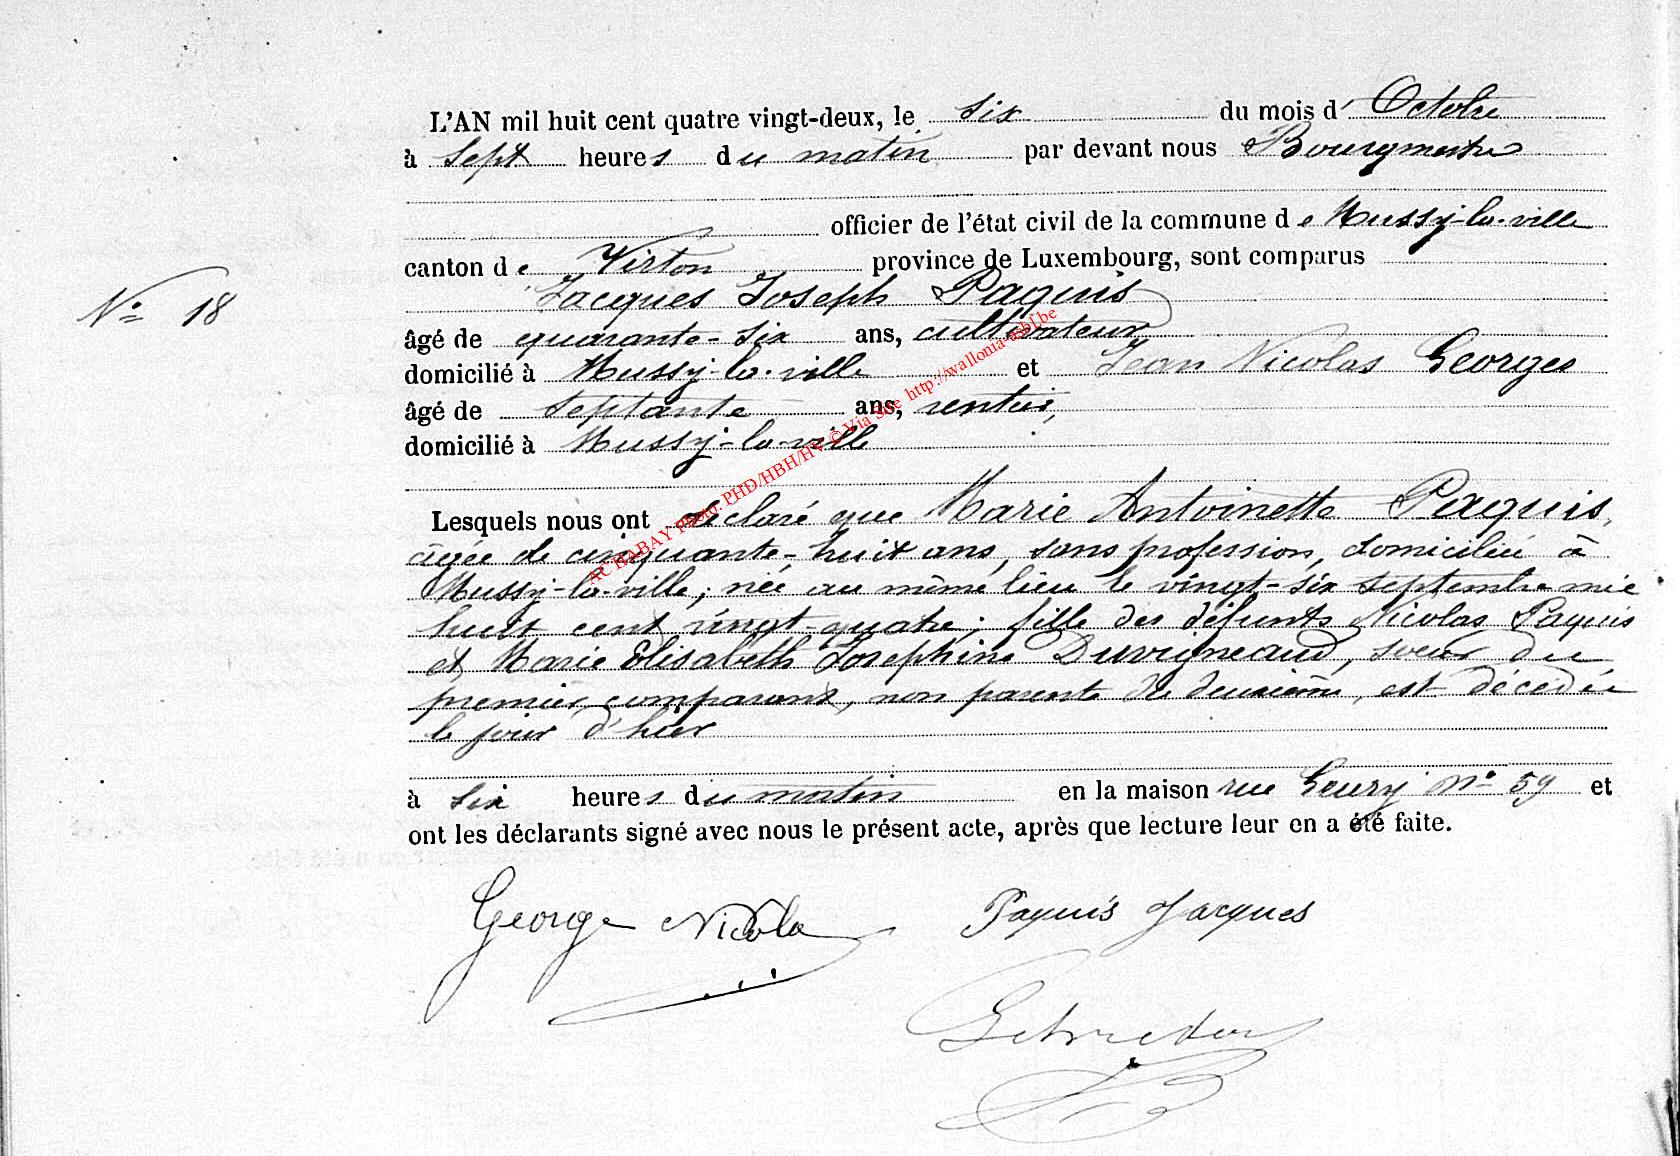 L'AN mil huit cent quatre vingt-deux, le six du mois d' Octobre
à sept heures du matin par devant nous Bourgmestre
officier de l'état civil de la commune de Mussy-la-ville
canton de Virton province de Luxembourg, sont comparus
N° 18
Jacques Joseph Paquis
âgé de quarante-six ans, cultivateur
domicilié à Mussy-la-ville et Jean Nicolas Georges
âgé de septante ans, rentier,
domicilié à Mussy-la-ville
AC HABAY Photo: PHD/HBH/HV © Via Site http://wallonia-asbl.be
Lesquels nous ont déclaré que Marie Antoinette Paquis,
âgée de cinquante-huit ans, sans profession, domiciliée à
Mussy-la-ville, née au même lieu le vingt-six septembre mil
huit cent vingt-quatre; fille des défunts Nicolas Paquis
et Marie Elisabeth Josephine Duvigneaud, sœur du
premier comparant, non parente du deuxième, est décédée
le jour d'hier
à six heures du matin en la maison rue N° 59 et
ont les déclarants signé avec nous le présent acte, après que lecture leur en a été faite.
George Nicola Paquis Jacques